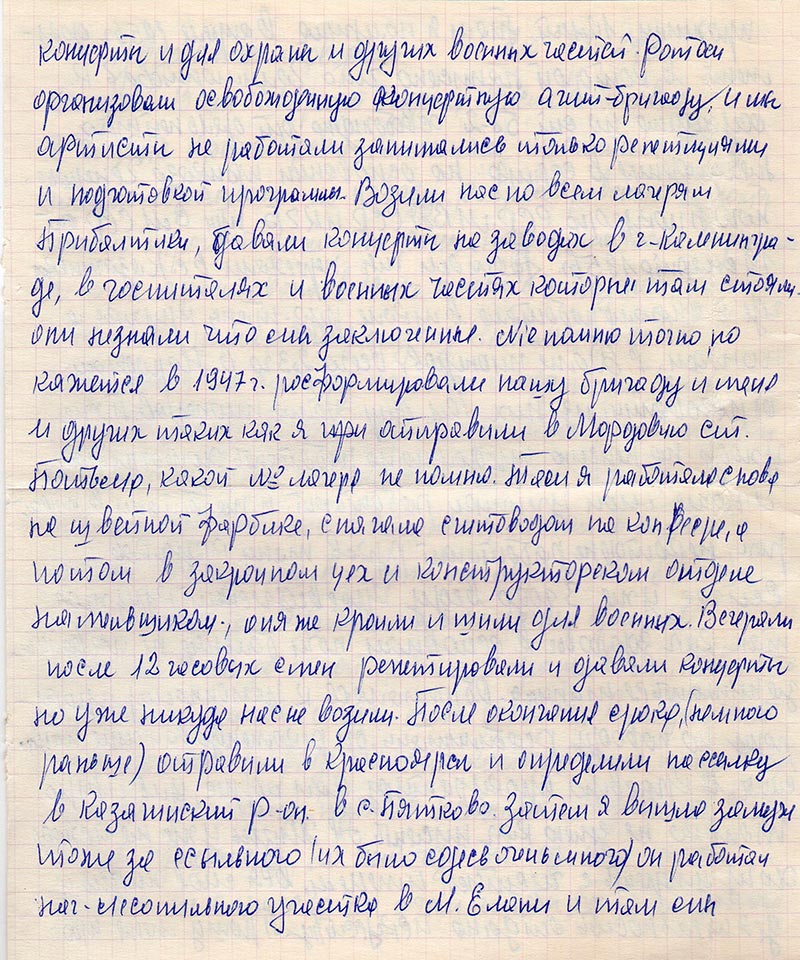 концерты и для охраны и других военных частей. Потом
организовали освобожденную концертную агит-бригаду, и мы
артисты не работали занимались только репетициями
и подготовкой программы. Возили нас по всем лагерям
Прибалтики, давали концерты на заводах в г-Калининград-
де, в госпиталях и военных частях которые там стояли.
они незнали что мы заключенные. Не помню точно, но
кажется в 1947 г. росформировали нашу бригаду и меня
и других таких как я отправили в Мордовию ст.
Потьма, какой № лагеря не помню. Там я работала снова
на швейной фабрике, сначала счетоводом на конвеере, а
потом в закройном цех и конструкторском отделе
, опять же кроили и шили для военных. Вечерами
после 12 часовых смен репетировали и давали концерты
но уже никуда нас не возили. После окончания срока, (немного
раньше) отравили в Красноярск и определили на ссылку
в Казачинский р-он. в с. Пятково. Затем я вышла замуж
тоже за ссыльного (их было здесь очень много) он работал
нач-лесопильного участка в М. Елани и там мы